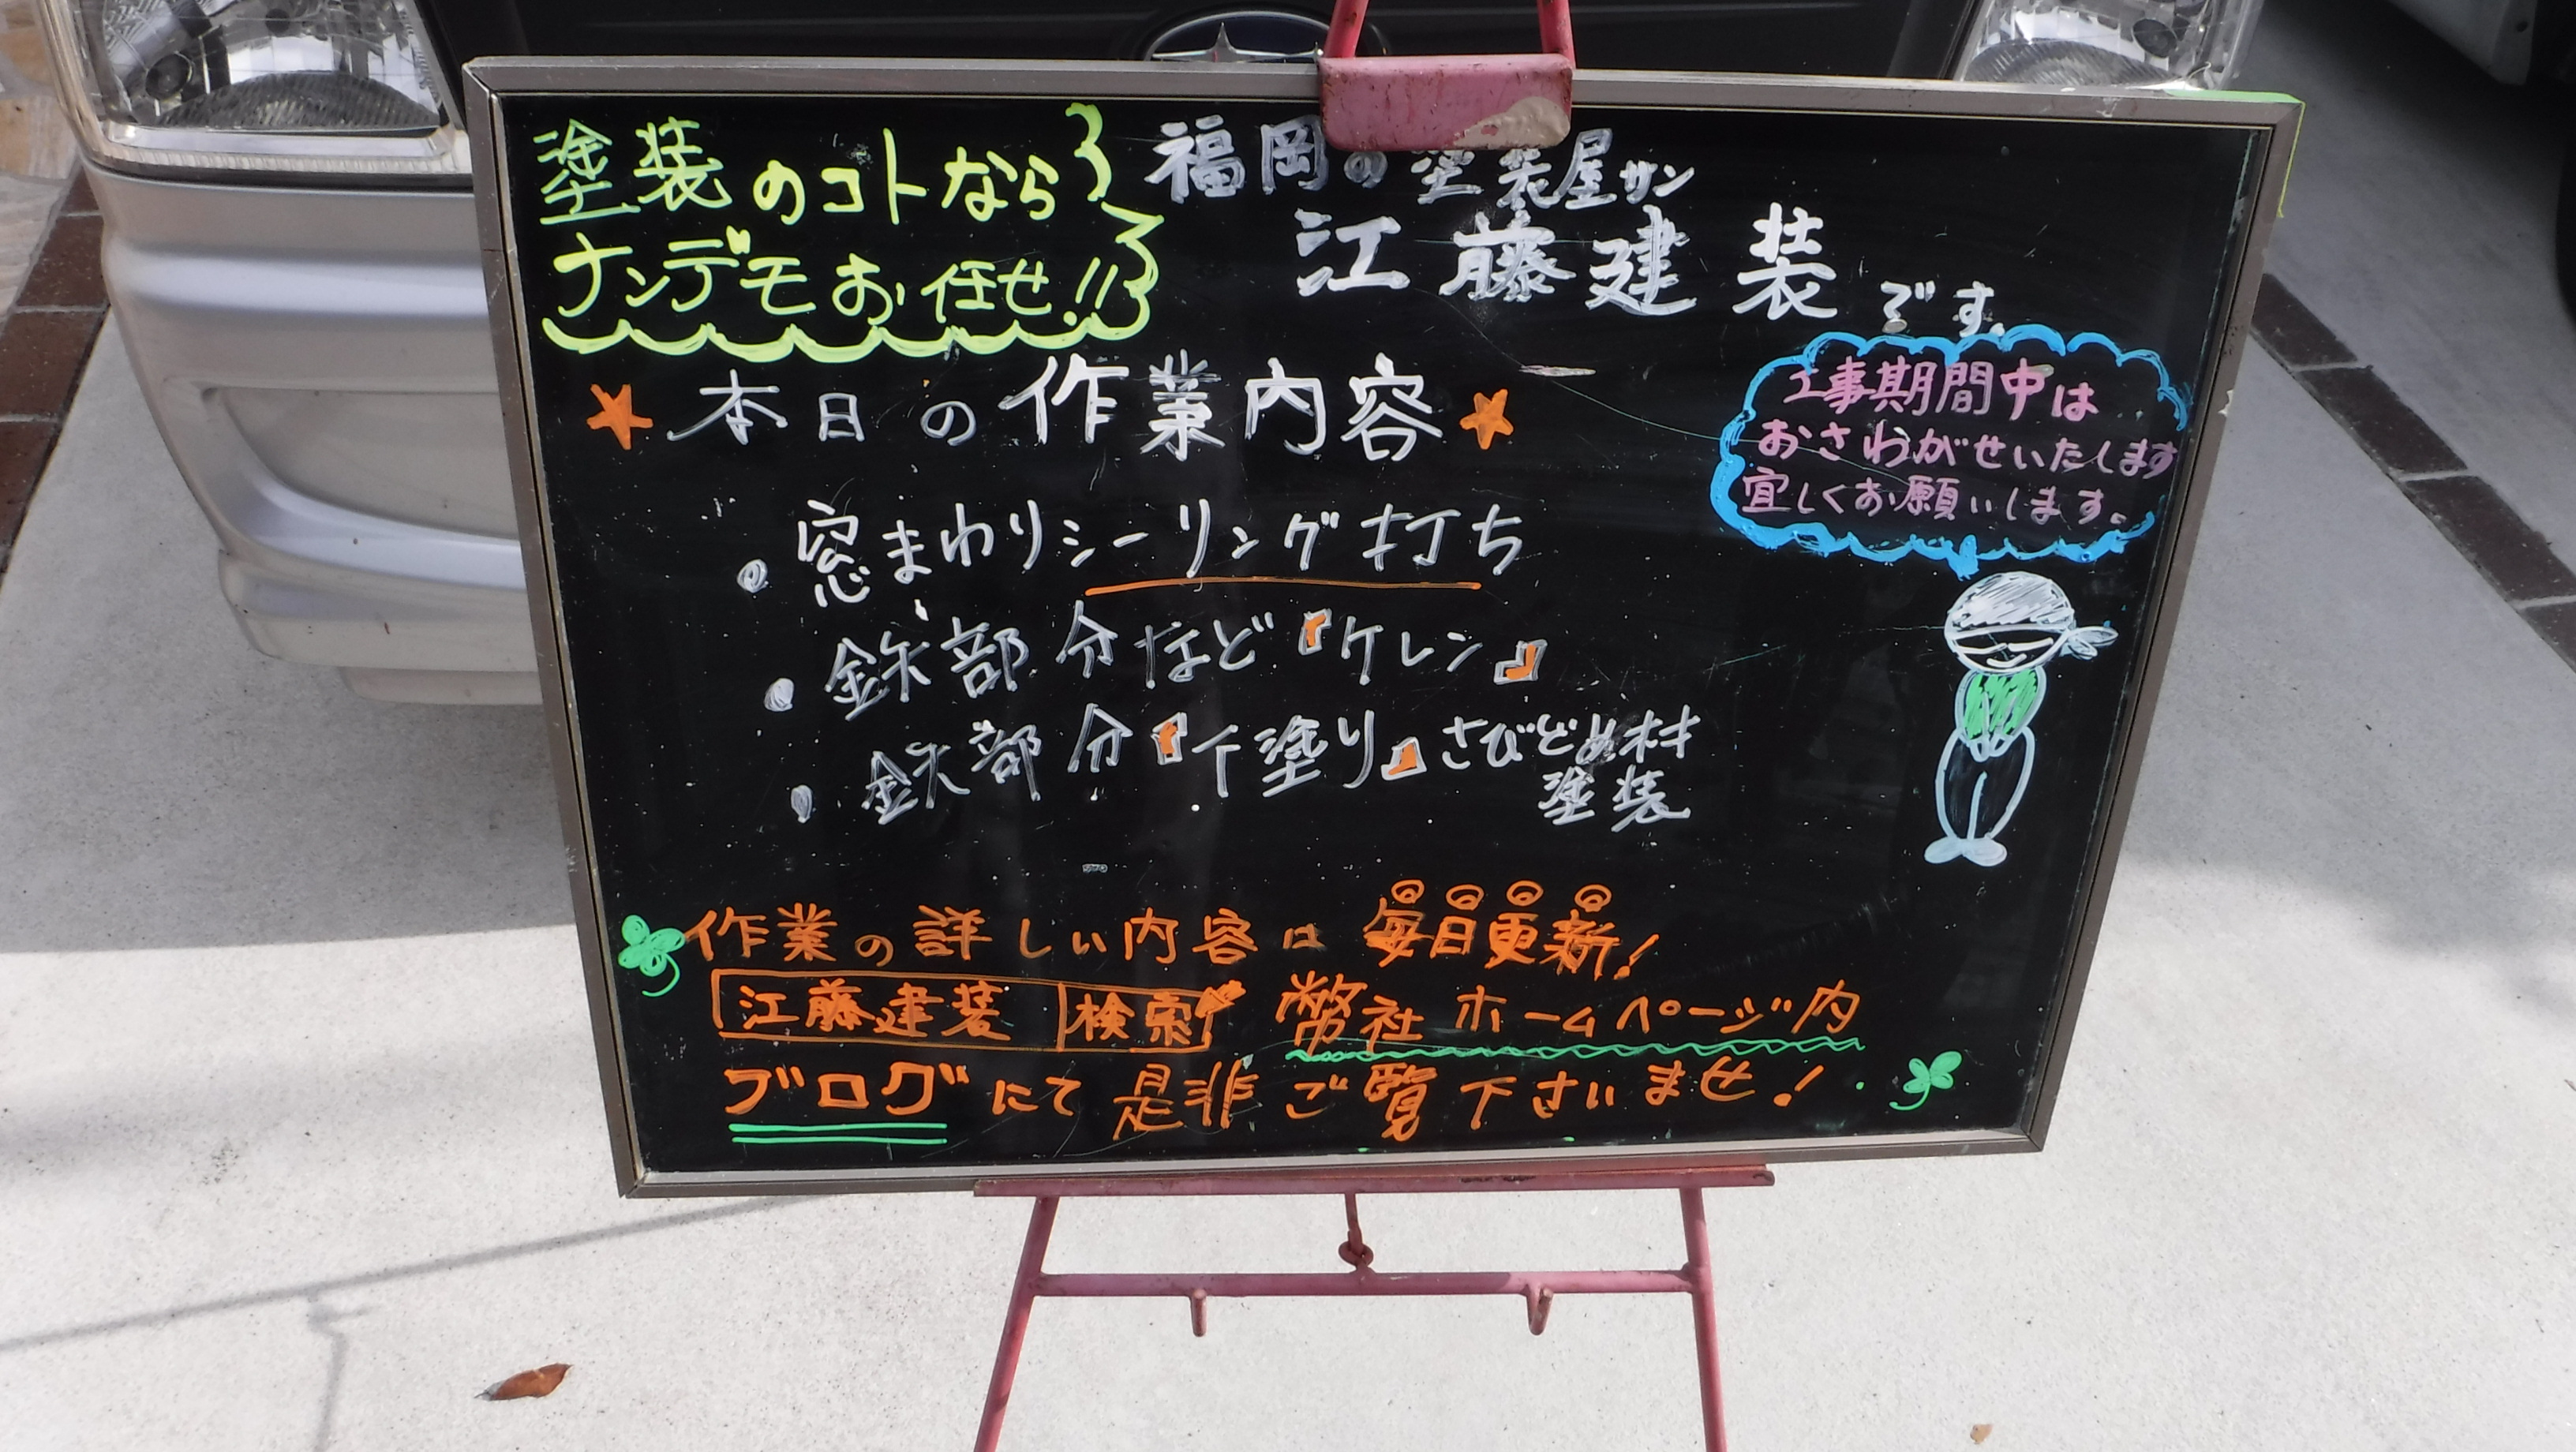 塗装のコトなら
ナンデモお任せ!!
福岡の塗装屋サン
江藤建装です。
★本日の作業内容★
工事期間中は
おさわがせいたします
宜しくお願いします。
・窓まわりシーリング打ち
・鉄部分など『ケレン』
・鉄部分『下塗り』さびどめ材
塗装
作業の詳しい内容は毎日更新!
江藤建装 検索 弊社ホームページ内
ブログにて是非ご覧下さいませ!